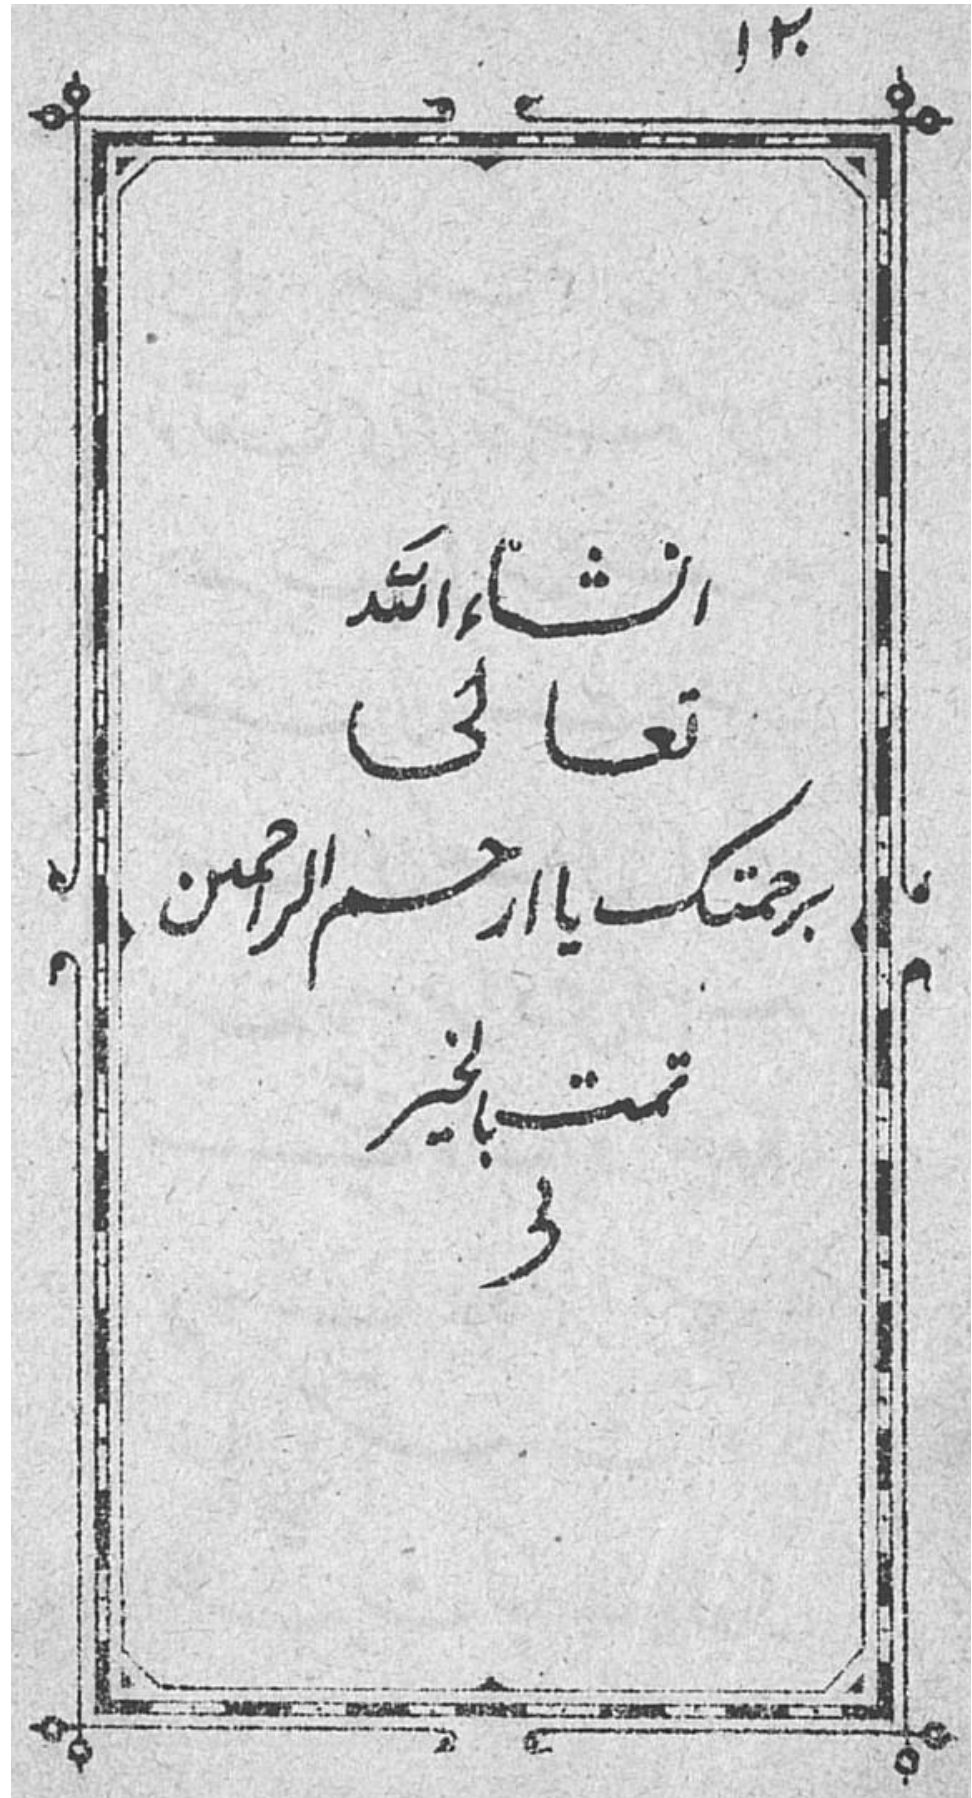 ۱۲۰
انشآء اللہ
تعالی
برحمتک یا ارحم الراحمین
تمت بالخیر